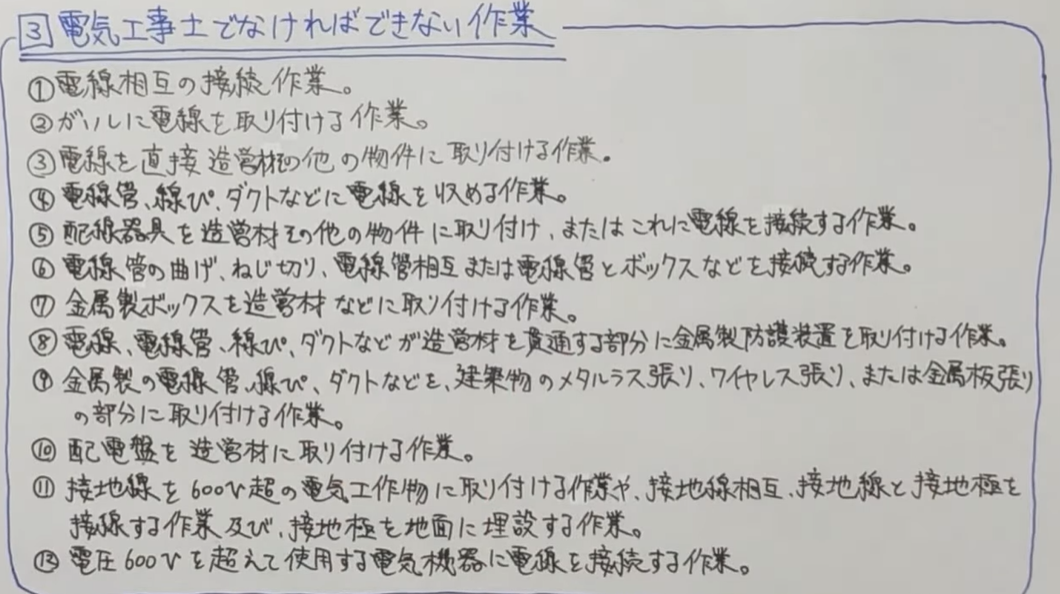 3 電気工事士でなければできない作業
①電線相互の接続作業。
②がいしに電線を取り付ける作業。
③電線を直接造営材その他の物件に取り付ける作業。
④電線管、線ぴ、ダクトなどに電線を収める作業。
⑤配線器具を造営材その他の物件に取り付け、またはこれに電線を接続する作業。
⑥電線管の曲げ、ねじ切り、電線管相互または電線管とボックスなどを接続する作業。
⑦金属製ボックスを造営材などに取り付ける作業。
⑧電線、電線管、線ぴ、ダクトなどが造営材を貫通する部分に金属製防護装置を取り付ける作業。
⑨金属製の電線管、線ぴ、ダクトなどを、建築物のメタルラス張り、ワイヤレス張り、または金属板張り
の部分に取り付ける作業。
⑩配電盤を造営材に取り付ける作業。
⑪接地線を600V超の電気工作物に取り付ける作業や、接地線相互、接地線と接地極を
接線する作業及び、接地極を地面に埋設する作業。
⑫電圧600Vを超えて使用する電気機器に電線を接続する作業。